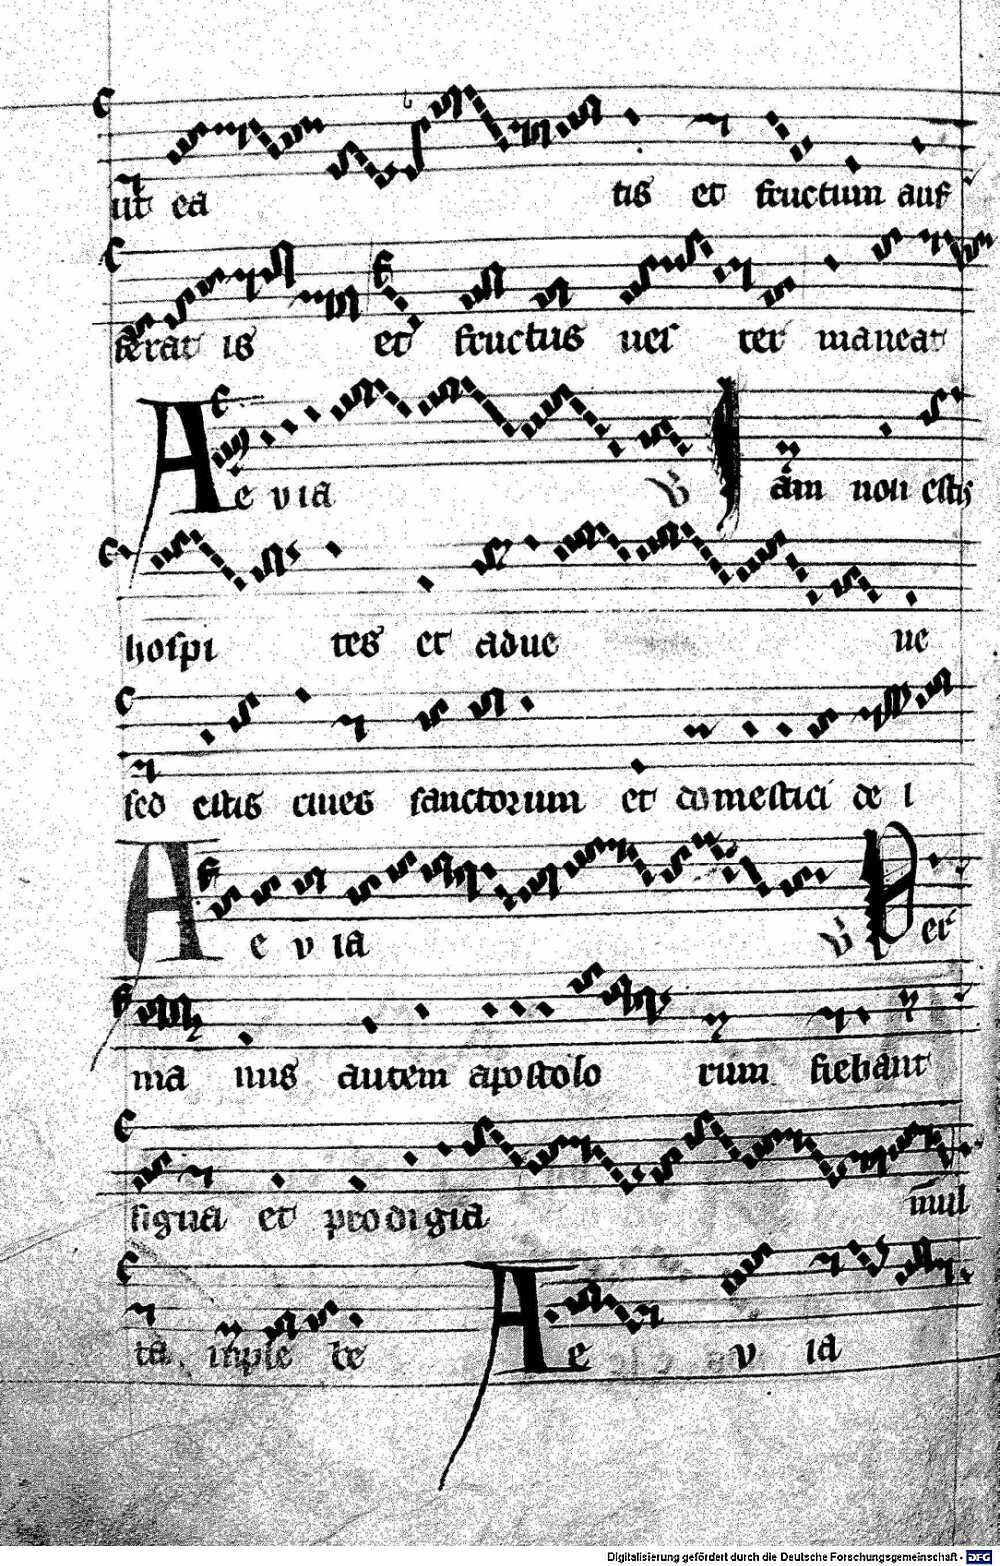 ut ea tis et fructum auf
ferat is et fructus ues ter maneat
A e v ia ℣ I am non estis
hospi tes et adue ne
sed estis ciues sanctorum et domestici de i
A e v ia ℣ Per
ma nus autem apostolo rum fiebant
signa et prodigia mul
ta in ple be A e v ia
Digitalisierung gefördert durch die Deutsche Forschungsgemeinschaft - DFG